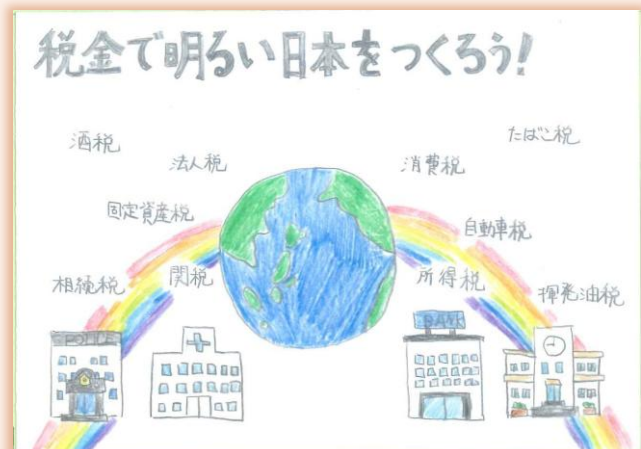 税金で明るい日本をつくろう!
酒税
法人税
消費税
たばこ税
固定資産税
自動車税
相続税
関税
所得税
揮発油税
POLICE
BANK